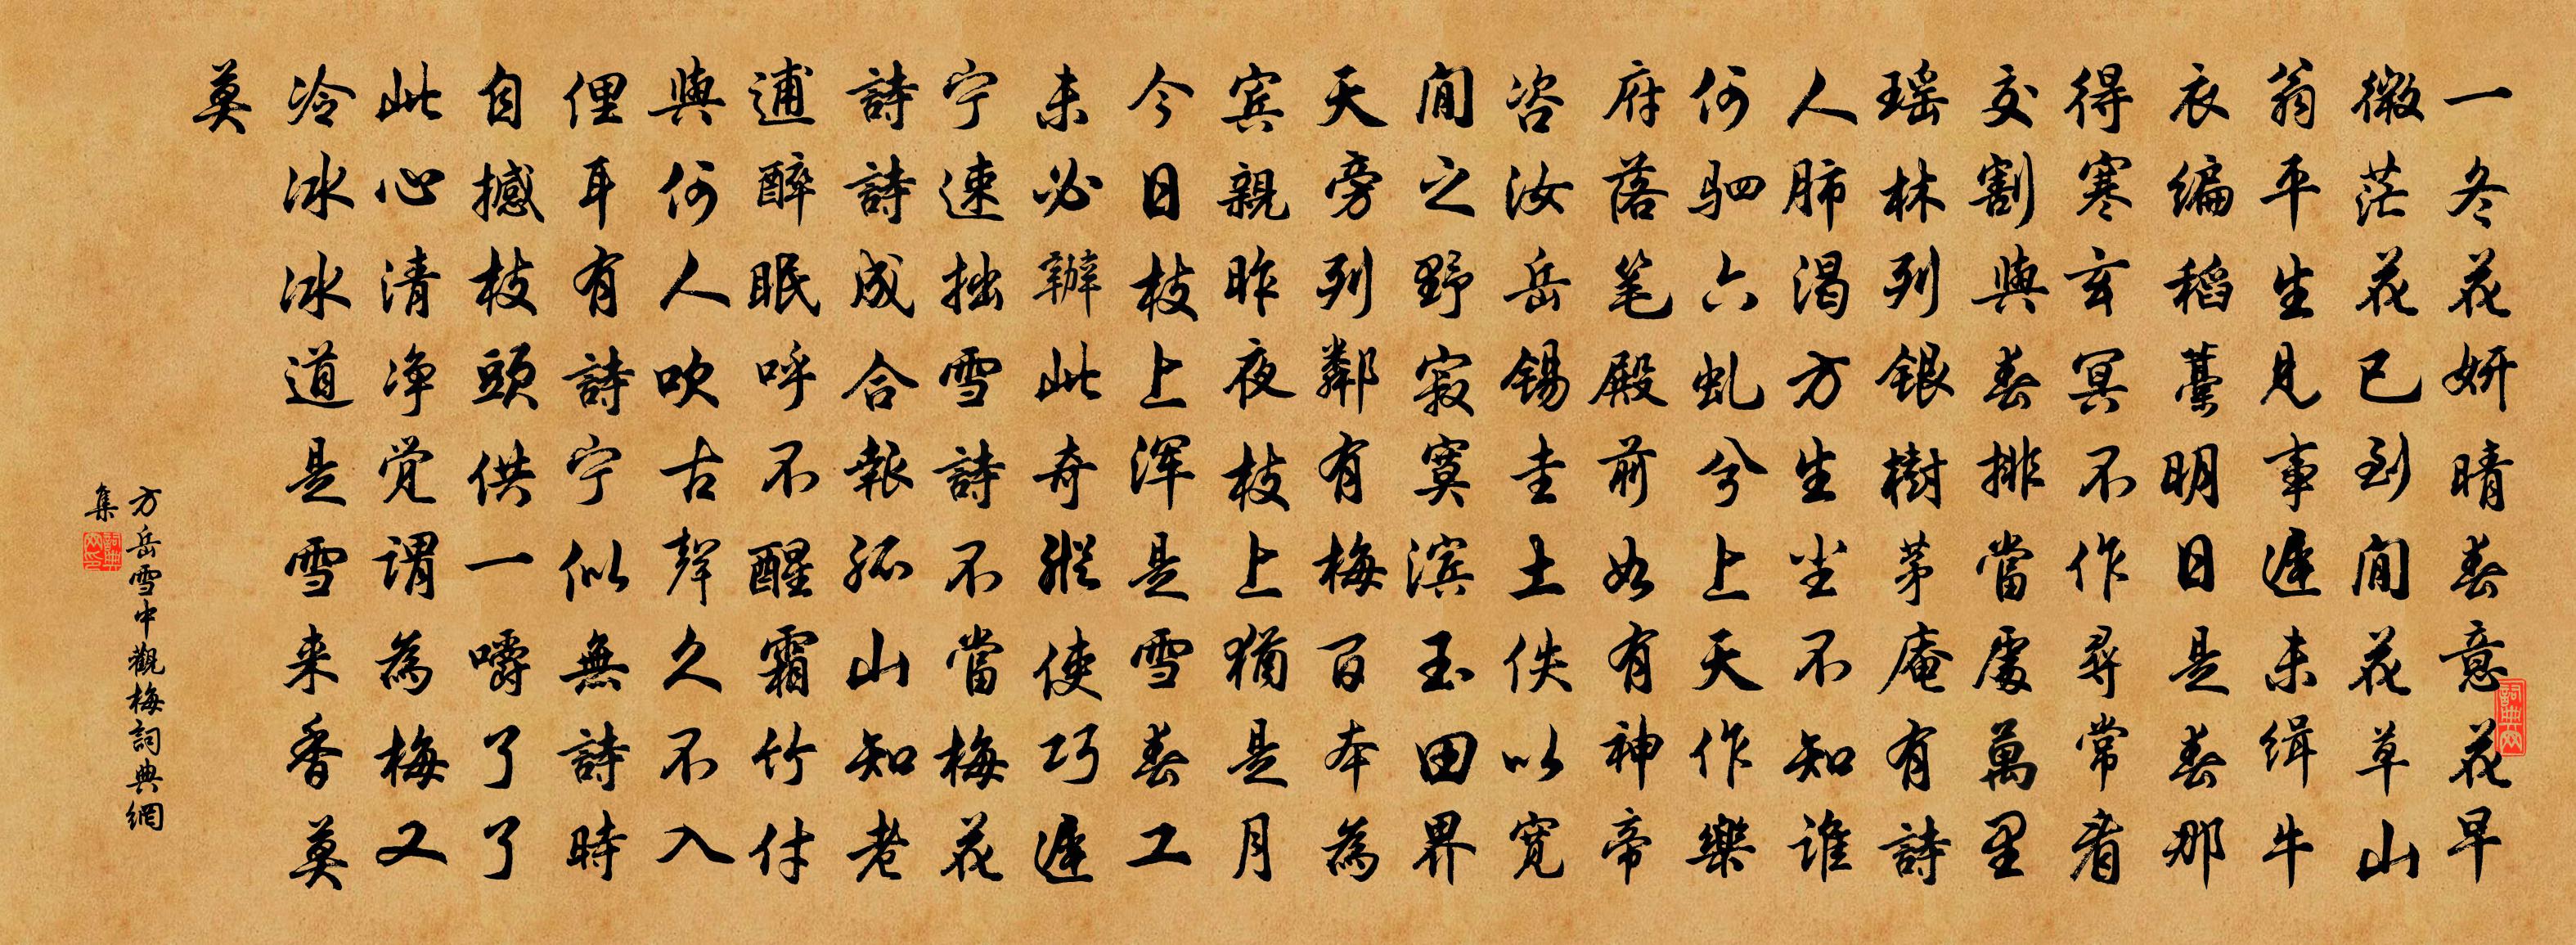 一冬花妍晴春意花早
微茫花已到间花草山
翁平生見事遲未緝牛
衣編稻藁明日是春那
得寒玄冥不作尋常看
交割與春排當處萬里
瑶林列銀樹茅庵有詩
人肺渴方生尘不知谁
何驷六虬兮上天作樂
府落笔殿前如有神帝
咨汝岳锡圭土佚以宽
閒之野寂寞滨玉田界
天旁列鄰有梅百本為
宾親昨夜枝上猶是月
今日枝上浑是雪春工
未必辦此奇縱使巧遲
宁速拙雪詩不當梅花
詩詩成合報孤山知老
逋醉眠呼不醒霜竹付
與何人吹古聲久不入
俚耳有詩宁似無詩時
自撼枝頭供一嚼了了
此心清净觉谓為梅又
冷冰冰道是雪来香莫
莫
方岳雪中觀梅詞典網
集